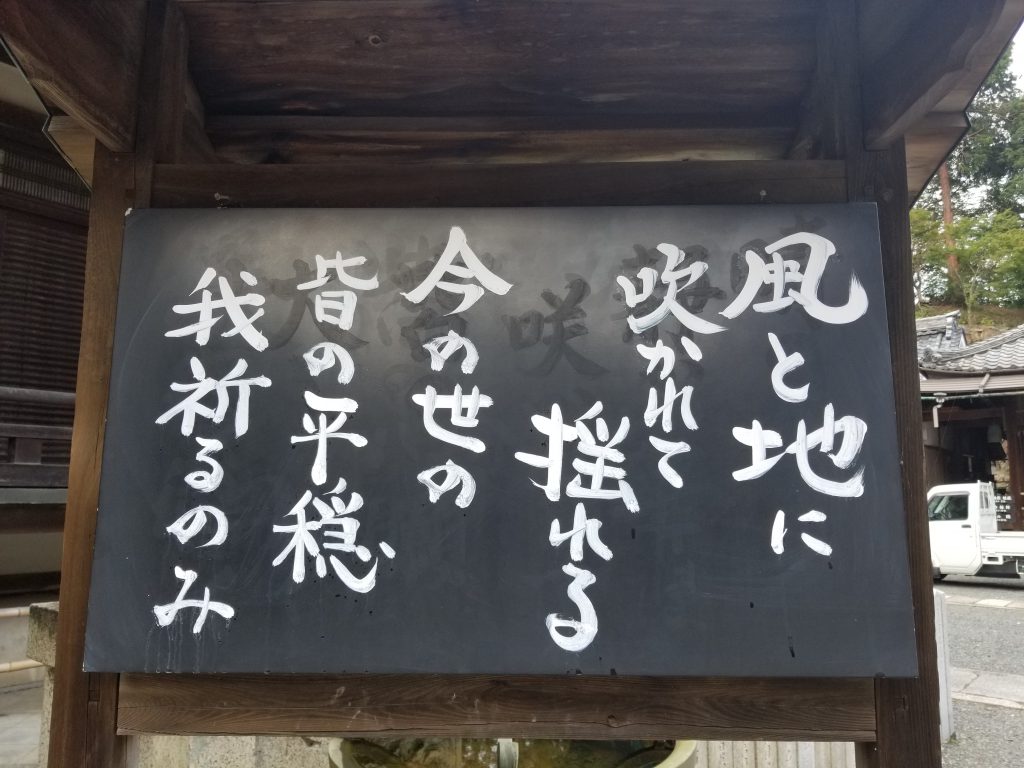 風と地に
吹かれて
揺れる
今の世の
皆の平穏
我祈るのみ